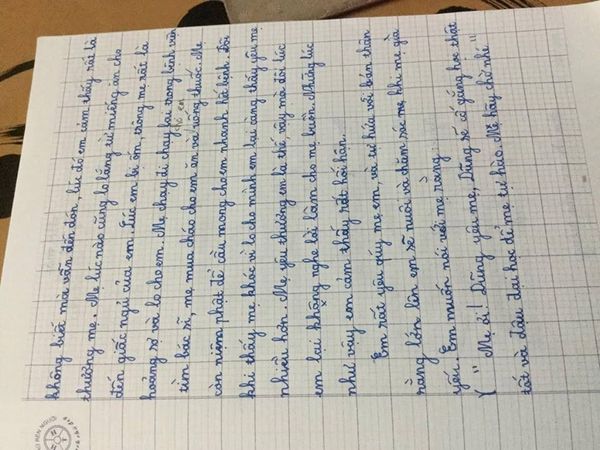 không biết mà vẫn đến đón, lúc đó em cảm thấy rất là
thương mẹ. Mẹ lúc nào cũng lo lắng từ miếng ăn cho
đến giấc ngủ của em. Lúc em bị ốm, trông mẹ rất là
hoảng sợ và lo cho em. Mẹ chạy đi chạy lại trong bệnh viện
tìm bác sĩ, mẹ mua cháo cho em ăn và cho em uống thuốc. Mẹ
còn niệm phật để cầu mong cho em nhanh hồi bệnh. Đôi
khi thấy mẹ khóc vì lo cho mình em lại càng thấy yêu mẹ
nhiều hơn. Mẹ yêu thương em là thế vậy mà đôi lúc
em lại không nghe lời làm cho mẹ buồn. Những lúc
như vậy em cảm thấy rất hối hận.
Em rất yêu quý mẹ em, và tự hứa với bản thân
rằng lớn lên em sẽ nuôi và chăm sóc mẹ khi mẹ già
yếu. Em muốn nói với mẹ rằng:
" Mẹ ơi! Dũng yêu mẹ, Dũng sẽ cố gắng học thật
tốt và đậu đại học để mẹ tự hào. Mẹ hãy chờ nhé "